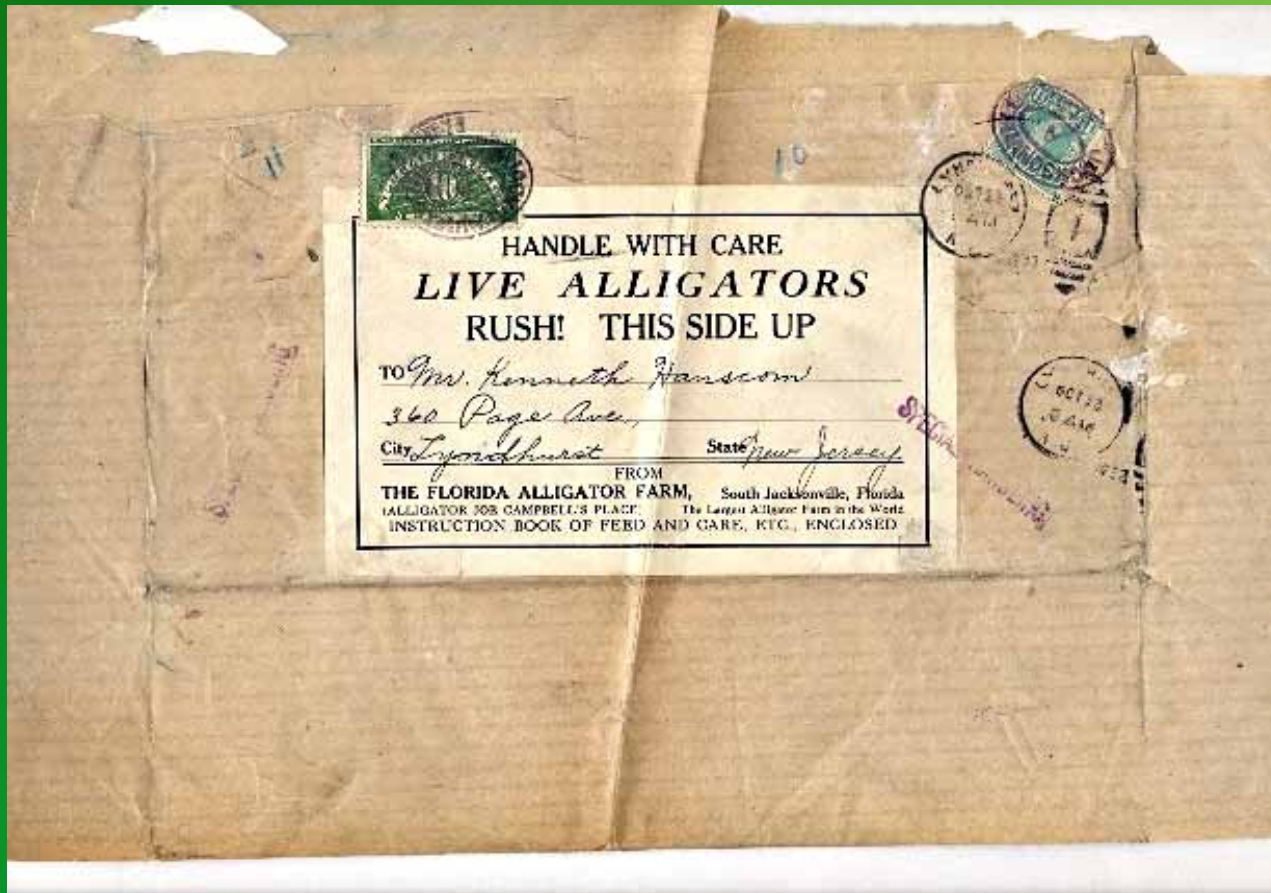 HANDLE WITH CARE
LIVE ALLIGATORS
RUSH! THIS SIDE UP
TO Mr. Kenneth Hanscom
360 Page Ave,
City Lyndhurst State New Jersey
FROM
THE FLORIDA ALLIGATOR FARM, South Jacksonville, Florida
(ALLIGATOR JOE CAMPBELL'S PLACE) The Largest Alligator Farm in the World
INSTRUCTION BOOK OF FEED AND CARE, ETC., ENCLOSED